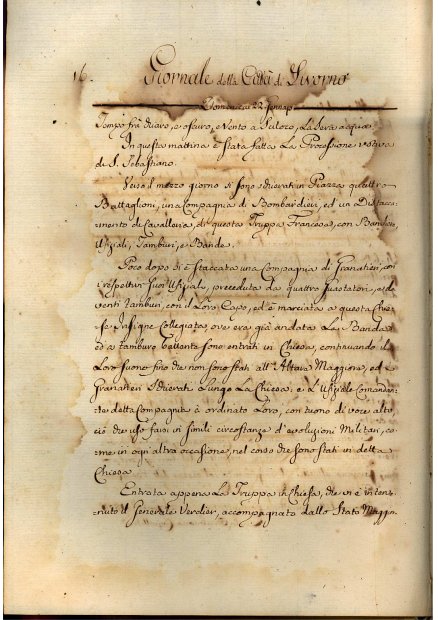 16. Giornale della Città di Livorno
Domenica 22 Gennajo
Tempo frà chiaro, e oscuro, e Vento a Scilocco, La Sera acqua.
In questa mattina è stata fatta La Processione votiva
di S. Sebastiano.
Verso il mezzo giorno si sono schierati in Piazza quattro
Battaglioni, una Compagnia di Bombardieri, ed un Distacca-
mento di Cavalleria, di questa Truppa Francese, con Bandiere,
Ufiziali, Tamburi, e Bande.
Poco dopo si è staccata una Compagnia di Granatieri, con
i respettivi suoi Ufiziali, preceduta da quattro Guastatori, e da
venti Tamburi, con il Loro Capo, ed è marciata a questa Chie-
sa Insigne Collegiata, ove era già andata La Banda
ed a tamburo battente sono entrati in Chiesa, continuando il
Loro suono fino che non sono stati all'Altare Maggiore, ed i
Granatieri schierati Lungo La Chiesa, e L'Ufiziale Comandan-
te detta Compagnia à ordinato Loro, con tuono di voce alto,
ciò che usa farsi in simili circostanze d'evoluzioni Militari, co-
me in ogni altra occasione, nel corso che sono stati in detta
Chiesa.
Entrata appena La Truppa in Chiesa, che vi è inter-
venuto il Generale Verdier, accompagnato dallo Stato Maggio-